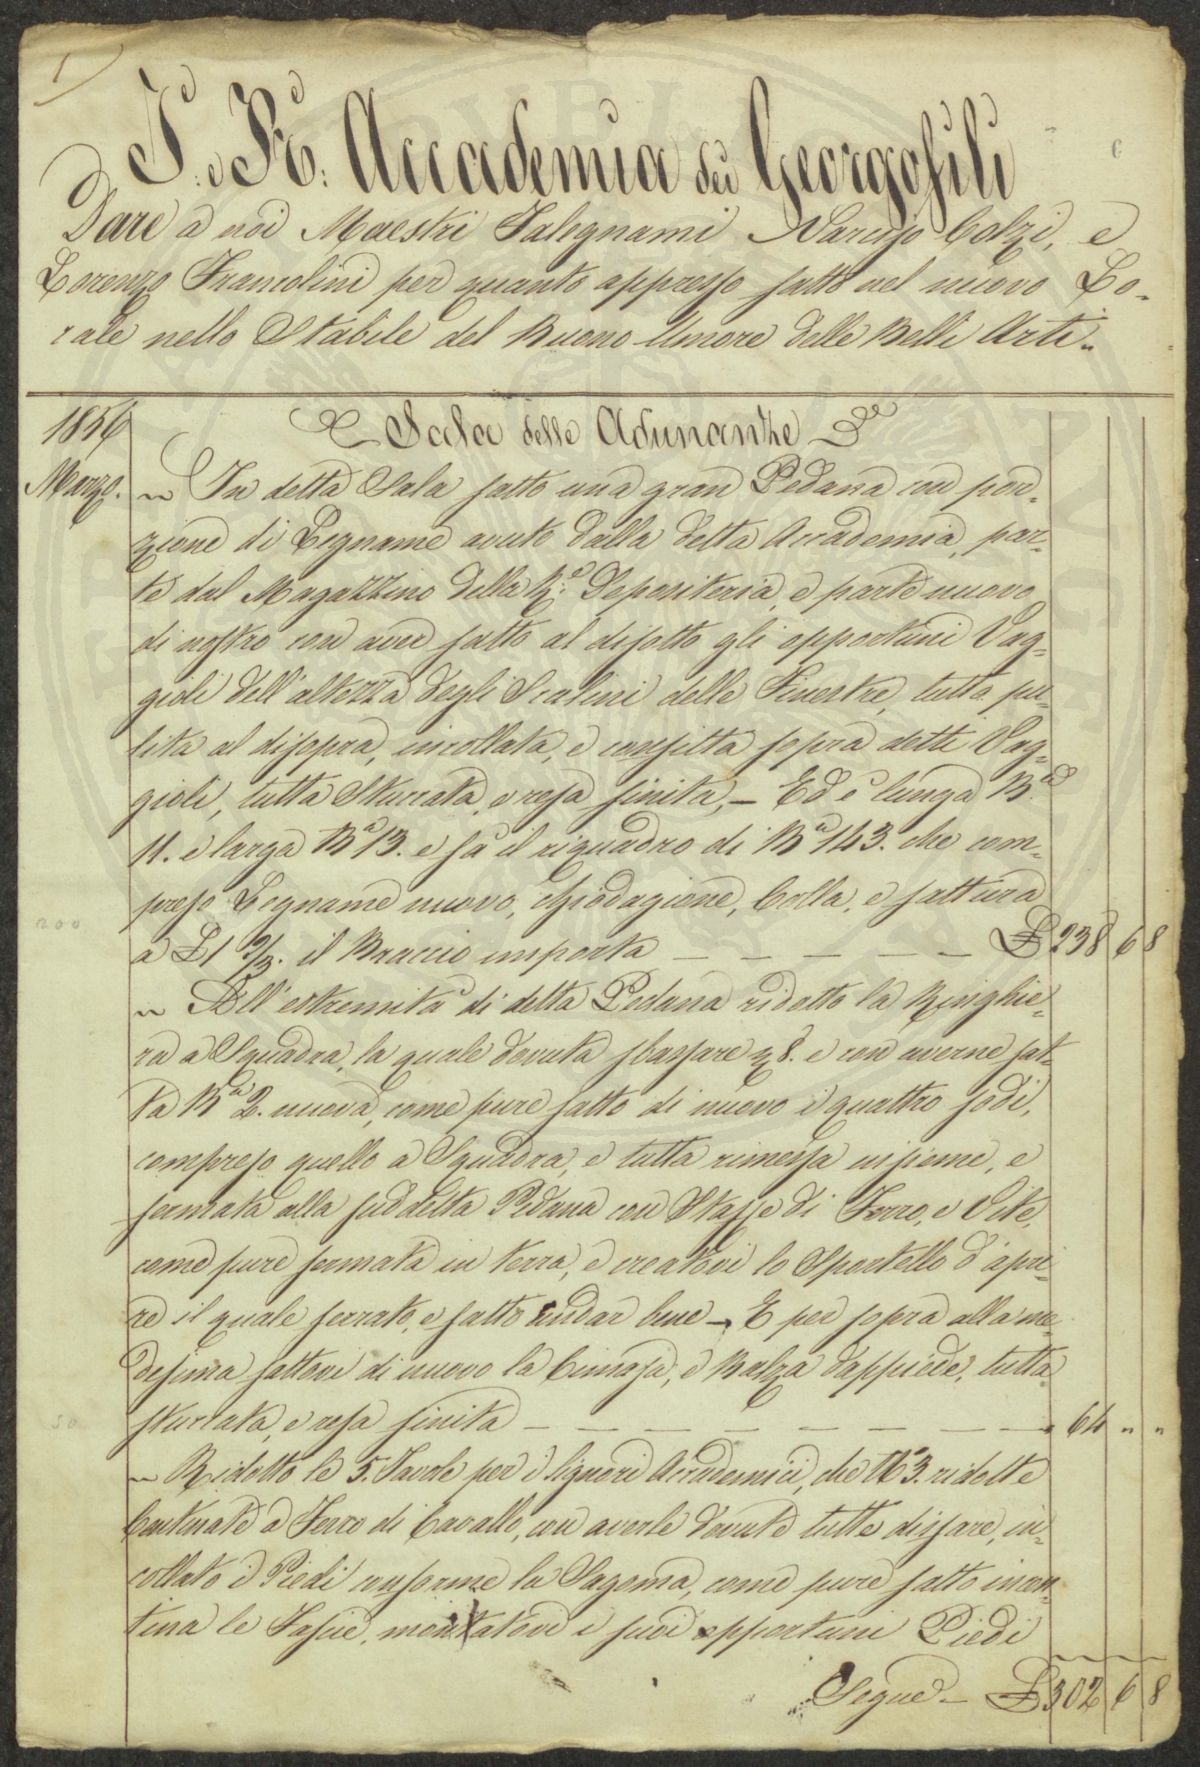 1)
I. e R. Accademia dei Georgofili
Dare a noi Maestri Falegnami Narciso Colzi, e
Lorenzo Francolini per quanto appresso fatto nel nuovo Lo-
cale nello Stabile del Buono Umore delle Belle Arti.
1856
Sala delle Adunanze
Marzo. „ In detta Sala fatto una gran Pedana con por-
zione di Legname avuto dalla detta Accademia, par-
te dal Magazzino della R.e Depositeria, e parte nuovo
di nostro con aver fatto al disotto gli opportuni Vag-
gioli dell'altezza degli Scalini delle Finestre, tutta pu-
lita al disopra, incollata, e confitta sopra detti Vag-
gioli, tutta Stuccata, e resa finita, – Ed è lunga B.a
11. e larga B.a 13. e fa il riquadro di B.a 143. che com-
preso Legname nuovo, chiodagione, Colla, e fattura
200
a £ 1 2/3. il Braccio importa £ 238 6 8
„ All'estremità di detta Pedana ridotto la Ringhie-
ra a Squadra, la quale dovuta sbassare 8. e con averne fat-
ta B.a 2. nuova, come pure fatto di nuovo i quattro sodi,
compreso quello a Squadra, e tutta rimessa insieme, e
fermata alla suddetta Pedana con Staffe di Ferro, e Vite,
come pure fermata in terra, e creatovi lo Sportello d'apri-
re il quale ferrato, e fatto andar bene – E per sopra alla me-
desima fattovi di nuovo la Cimasa, e Balza dappiede, tutta
50
stuccata, e resa finita „ 64 „ „
„ Ridotto le 5. Tavole per i Signori Accademici, che N.o 3. ridotte
Centinate a Ferro di Cavallo, con averle dovute tutte disfare, in-
collato i Piedi conforme la Sagoma, come pure fatto in cen-
tina le Fascie, montatovi i suoi opportuni Piedi
Segue – £ 302 6 8